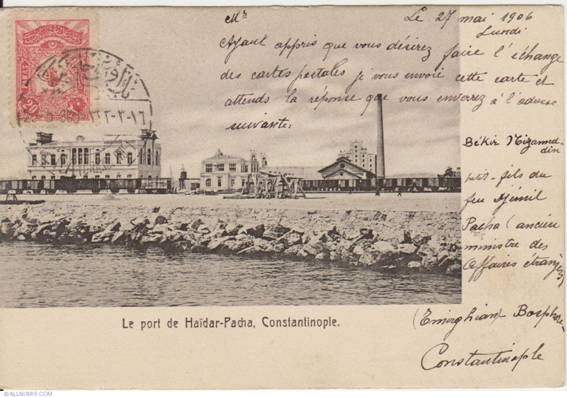 Mr
Le 27 mai 1906
Lundi
Ayant appris que vous désirez faire l'échange
des cartes postales je vous envoie cette carte et
attends la réponse que vous enverez à l'adresse
suivante:
Békir Nizameddin
fils du
feu Djémil
Pacha (ancien
ministre des
Affaires étrangères)
(Emirghian Bosphore
Constantinople
Le port de Haïdar-Pacha, Constantinople.
©ALLNUMIS.COM